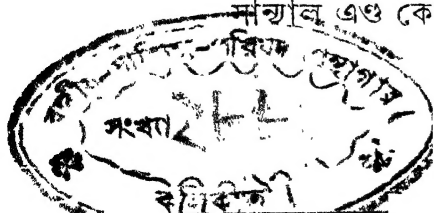 সান্যাল এণ্ড কো
বঙ্গীয় সাহিত্য পরিষদ গ্রন্থাগার
সংখ্যা
কলিকাতা